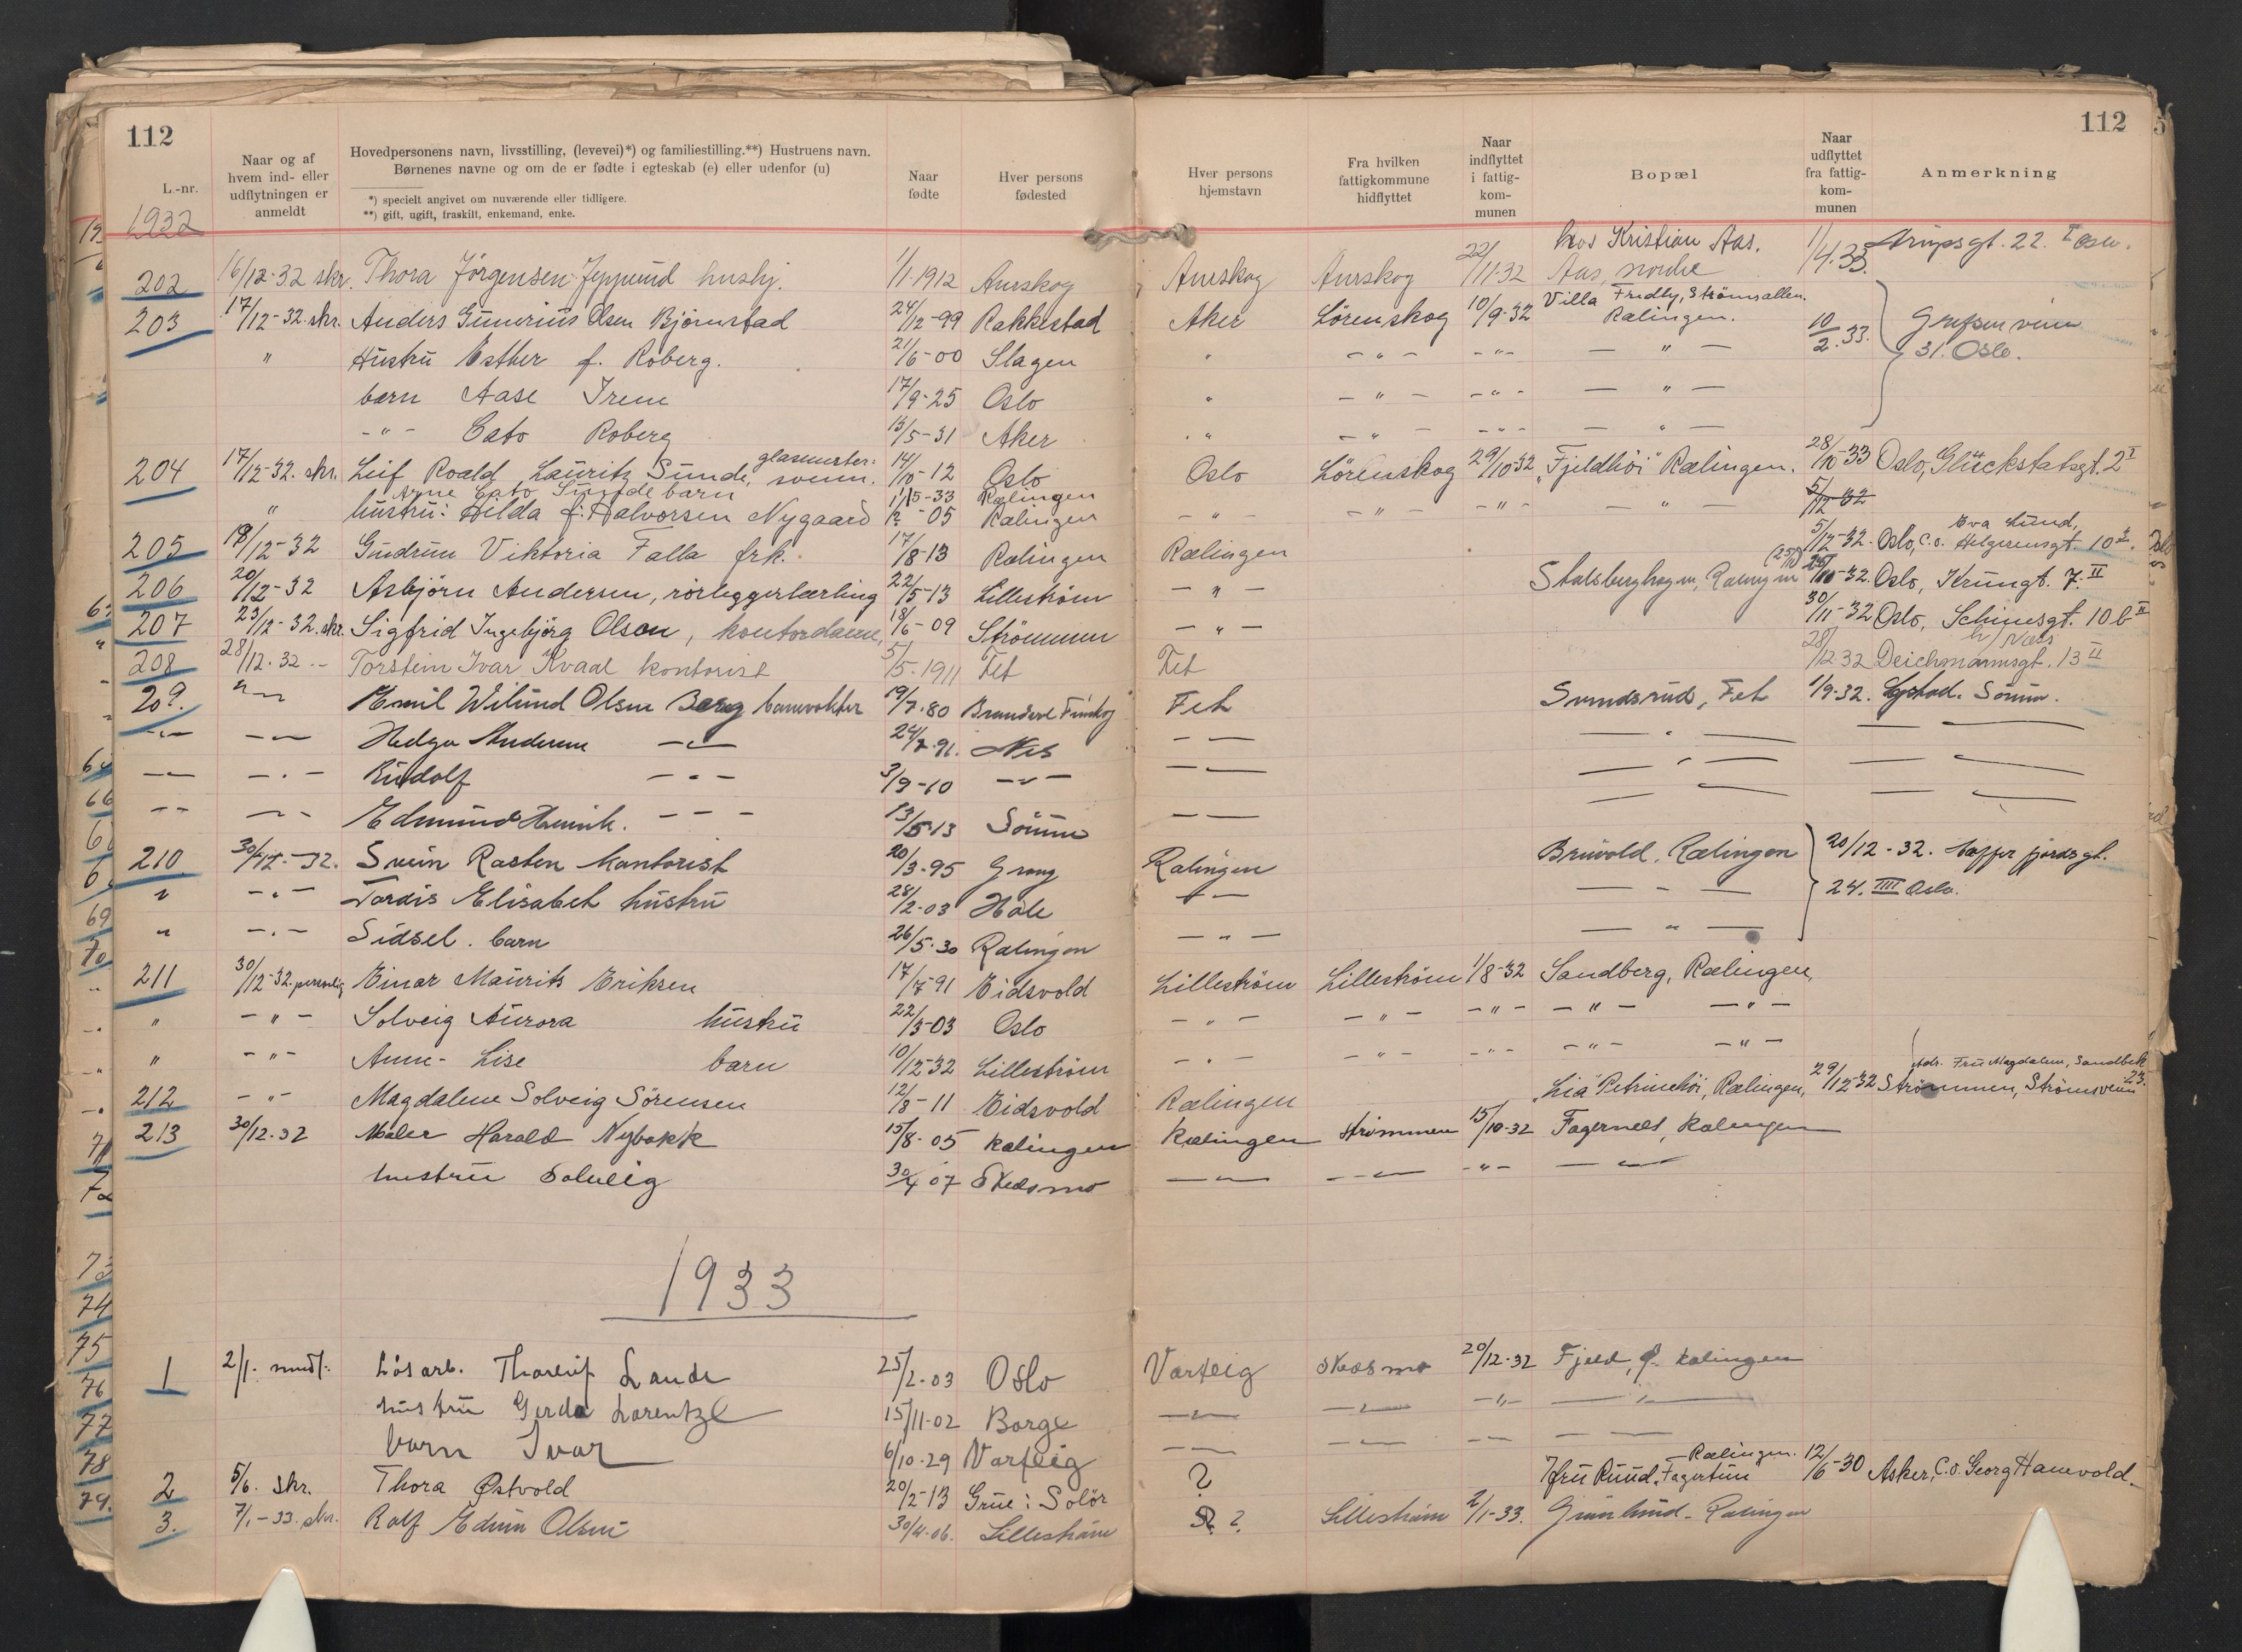 112
112
L.-nr.
Naar og af hvem ind- eller udflytningen er anmeldt
Hovedpersonens navn, livsstilling, (levevei)*) og familiestilling.**) Hustruens navn.
Børnenes navne og om de er fødte i egteskab (e) eller udenfor (u)
*) specielt angivet om nuværende eller tidligere.
**) gift, ugift, fraskilt, enkemand, enke.
Naar fødte
Hver persons fødested
Hver persons hjemstavn
Fra hvilken fattigkommune hidflyttet
Naar indflyttet i fattig-kom-munen
Bopæl
Naar udflyttet fra fattig-kom-munen
Anmerkning
1932
202 16/12-32 skr. Thora Jörgensen Jeppund hushj. 1/1-1912 Aurskog Aurskog Aurskog 22/11-32 hos Kristian Aas. Aas, nordre 1/4.33. 22. I Oslo.
203 17/12-32. skr. Anders Gunerius Olsen Björnstad 24/12-99 Rakkestad Aker Lörenskog 10/9-32 Villa Fredly, Strömsalleen. Rælingen. 10/2.33. Grefsenveien 31. Oslo.
" Hustru Esther f. Roberg. 21/6-00 Slagen " - " - - " - — " —
barn Aase Irene 17/9-25 Oslo " - " - - " - — " —
- " - Cato Roberg 13/5-31 Aker " - " - - " - — " —
204 17/12-32. skr. Leif Roald Lauritz Sunde, glasmester: svenn. 14/10-12 Oslo Oslo Lörenskog 29/10-32 "Fjeldhöi" Rælingen. 28/10-33 Oslo, Glückstatsgt. 2 I
Arne Cato Sunde barn 1/5-33 Rælingen
" hustru: Hilda f. Halvorsen Nygaard -05 Rælingen - " - - " - - " - — " — 5/12-32
205 18/12-32 Gudrun Viktoria Falla frk. 17/8-13 Rælingen Rælingen 5/12-32. Oslo, c.o. Eva Lund, Helgesensgt. 10
206 20/12-32 Asbjörn Andersen, rörleggerlærling 22/5-13 Lilleström - " - Stalsberghagen, Rælingen Oslo, Krungt. 7. II
207 23/12-32. skr. Sigfrid Ingebjörg Olsen, kontordame, 18/6-09 Strömmen - " - 30/11-32 Oslo, Schivesgt. 10 b II h/ Næss
208 28/12.32 - Torstein Ivar Kvaal kontorist 5/5.1911 Fet Fet 28/12.32 Deichmannsgt. 13 II
209. " - Emil Wilund Olsen Berg banevokter 19/7.80 Brandval Finskog Fet Svindsrud, Fet 1/9-32. Sörum.
- " - - " - Helga Andersen - " - 24/7.91. Nes - " - — " —
- " - - " - Rudolf - " - 3/9-10 - " - - " - — " —
- " - - " - Edmund Henrik. - " - 13/5-13 Sörum - " - — " —
210 30/12-32. Svein Rasten kontorist 20/3-95 Grong Rælingen Bruvold, Rælingen 20/12-32. 24. IIII Oslo.
" - " - Tordis Elisabet hustru 28/2-03 Hole - " - — " —
" - " - Sidsel. barn 26/5.30 Rælingen - " - — " —
211 30/12-32. personlig Einar Maurits Eriksen 17/7-91 Eidsvold Lilleström Lilleström 1/8-32 Sandberg, Rælingen,
" - " - Solveig Aurora hustru 22/3-03 Oslo - " - - " - - " - - " - - " -
" - " - Anne-Lise barn 10/12-32 Lilleström - " - - " - - " - - " - - " -
212 - " - Magdalene Solveig Sörensen 12/8-11 Eidsvold Rælingen "Lia" Petrinehöi, Rælingen, 29/12-32 Strömmen, Strömsveien 23. Adr. Fru Magdalene, Sandbek
213 30/12.32 Maler Harald Nybakk 15/8-05 Rælingen Rælingen Strömmen 15/10-32 Fagernes, Rælingen
hustru Solveig 30/4 07 Skedsmo - " - - " - - " - — " —
1933
1 2/1. mundtl: Lösarb. Thorleif Lande 25/2-03 Oslo Varteig Skedsmo 20/12-32 Fjeld, Rælingen
hustru Gerda Lorentze 15/11-02 Borge - " - - " - - " - — " —
barn Ivar 6/10.29 Varteig - " - - " - - " - — " —
2 5/6. skr. Thora Østvold 20/2-13 Grue i Solör ? Fru Ruud, Fagertun - Rælingen. 12/6-30 Asker, C.o. Georg Hanevold.
3. 7/1-33. skr. Rolf Edvin Olsen 30/4-06. Lilleström ? Lilleström 2/1-33. Grönlund - Rælingen